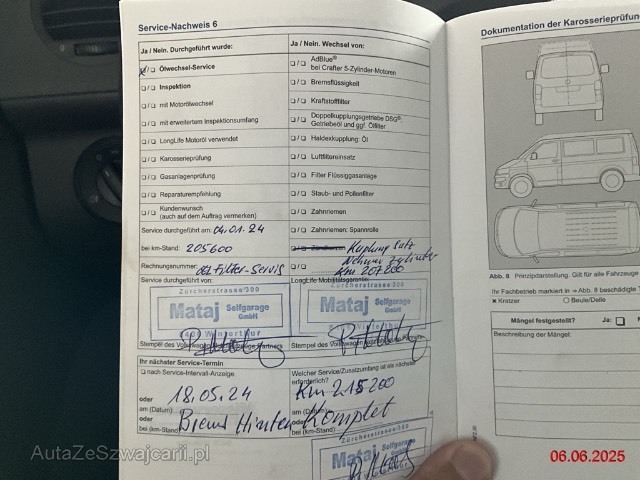 Service-Nachweis 6
Ja / Nein. Durchgeführt wurde:
Ölwechsel-Service
Inspektion
mit Motorölwechsel
mit erweitertem Inspektionsumfang
LongLife Motoröl verwendet
Karosserieprüfung
Gasanlagenprüfung
Reparaturempfehlung
Kundenwunsch
(auch auf dem Auftrag vermerken)
Service durchgeführt am: 04.01.24
bei km-Stand: 205600
Rechnungsnummer:
Service durchgeführt von:
Ja / Nein. Wechsel von:
AdBlue®
bei Crafter 5-Zylinder-Motoren
Bremsflüssigkeit
Kraftstofffilter
Doppelkupplungsgetriebe DSG®,
Getriebeöl und ggf. Ölfilter
Haldexkupplung: Öl
Luftfiltereinsatz
Filter Flüssiggasanlage
Staub- und Pollenfilter
Zahnriemen
Zahnriemen; Spannrolle
Kuplung Satz
Nehmer Zylinder
Km 207200
LongLife Mobilitätsgarantie:
Zürcherstrasse 300
Mataj Selfgarage
GmbH
8406 Winterthur
Zürcherstrasse 300
Mataj Selfgarage
GmbH
Ihr nächster Service-Termin
nach Service-Intervall-Anzeige
oder
am (Datum) 18.05.24
oder
bei (km-Stand)
Welcher Service/Zusatzumfang ist als nächster
erforderlich?
Km 215200
am (Datum)
oder
bei (km-Stand)
Brems Hinten Komplet
Zürcherstrasse 300
Mataj Selfgarage
GmbH
Dokumentation der Karosserieprüfun
Abb. 8 Prinzipdarstellung. Gilt für alle Fahrzeuge
Ihr Fachbetrieb markiert in ⇒ Abb. 8 beschädigte
Kratzer Beule/Delle
Mängel festgestellt? Ja:
Beschreibung der Mängel:
AutaZeSzwajcarii.pl
06.06.2025